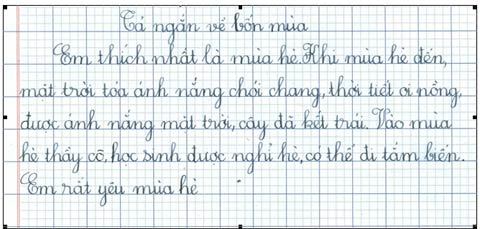 Tả ngắn về bốn mùa
Em thích nhất là mùa hè. Khi mùa hè đến,
mặt trời toả ánh nắng chói chang, thời tiết oi nồng,
được ánh nắng mặt trời, cây đã kết trái. Vào mùa
hè thầy cô, học sinh được nghỉ hè, có thể đi tắm biển.
Em rất yêu mùa hè